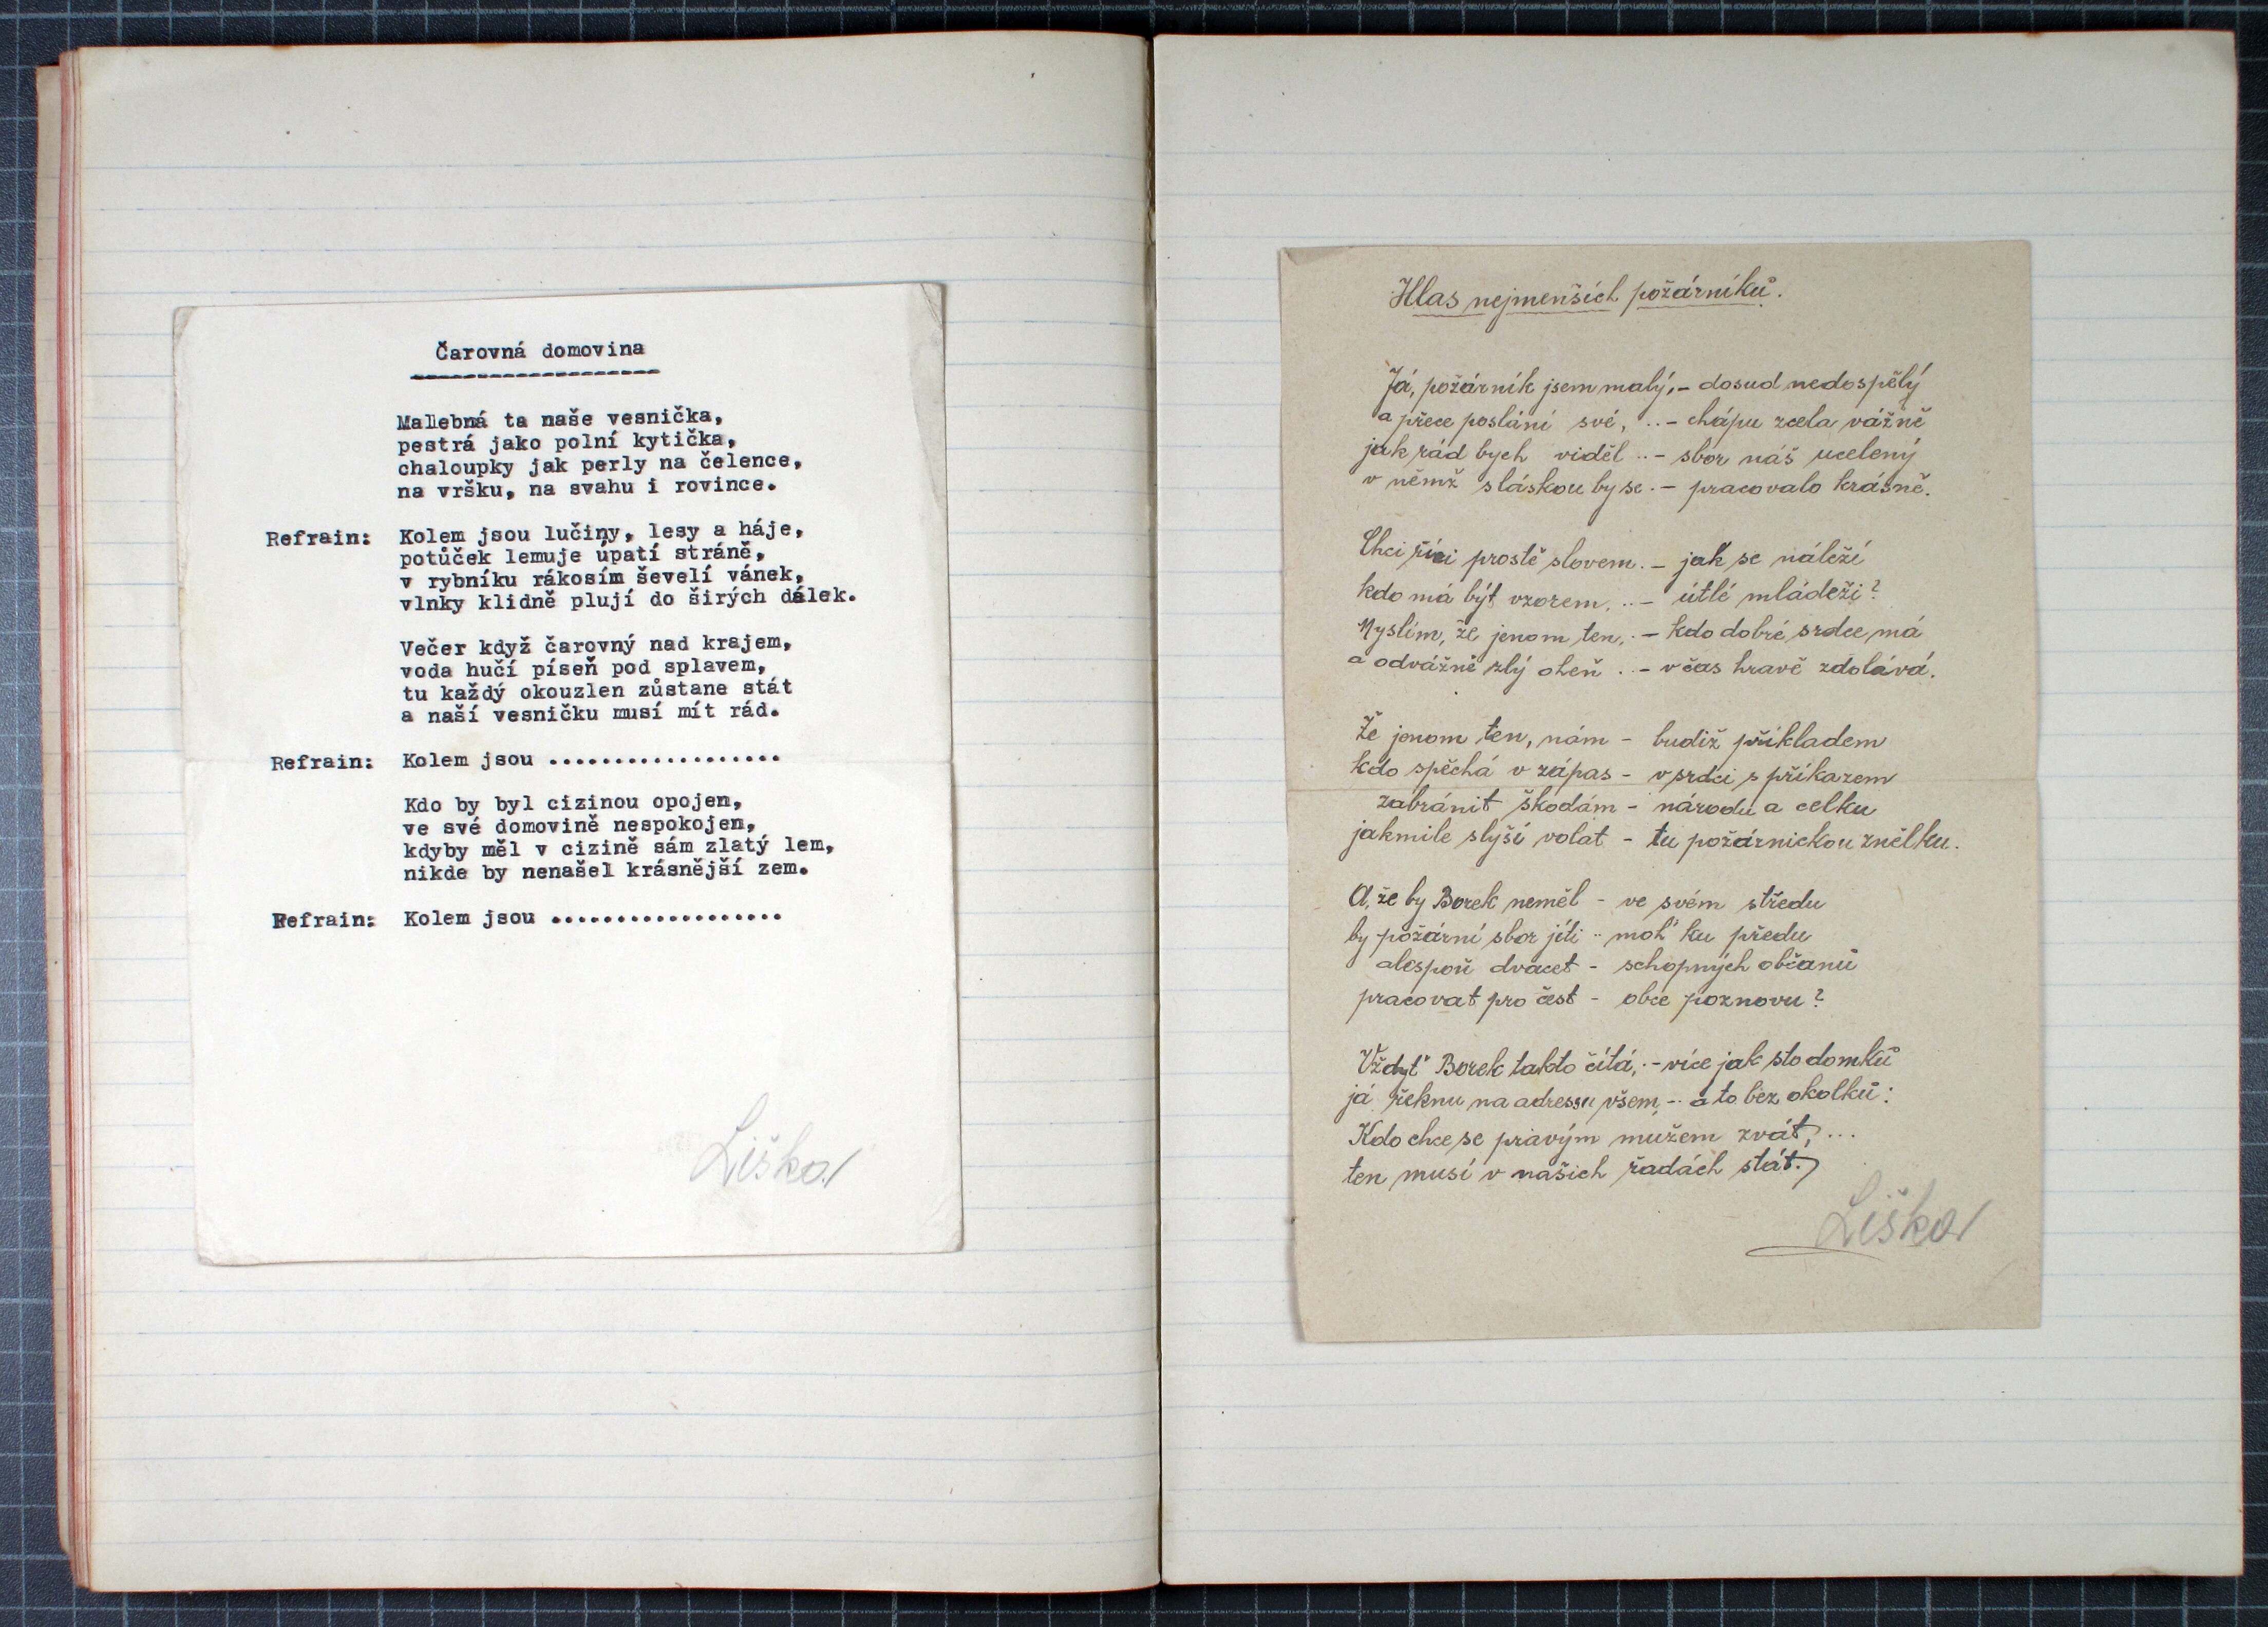 Čarovná domovina
Malebná ta naše vesnička,
pestrá jako polní kytička,
chaloupky jak perly na čelence,
na vršku, na svahu i rovince.
Refrain: Kolem jsou lučiny, lesy a háje,
potůček lemuje úpatí stráně,
v rybníku rákosím ševelí vánek,
vlnky klidně plují do širých dálek.
Večer když čarovný nad krajem,
voda hučí píseň pod splavem,
tu každý okouzlen zůstane stát
a naší vesničku musí mít rád.
Refrain: Kolem jsou ..................
Kdo by byl cizinou opojen,
ve své domovině nespokojen,
kdyby měl v cizině sám zlatý lem,
nikde by nenašel krásnější zem.
Refrain: Kolem jsou ..................
Liška
Hlas nejmenších požárníků.
Já, požárník jsem malý, - dosud nedospělý
a přece poslání své, .. - chápu zcela vážně
jak rád bych viděl .. - sbor náš ucelený
v němž s láskou by se . - pracovalo krásně.
Chci říci prostě slovem . - jak se náleží
kdo má být vzorem, .. - útlé mládeži?
Myslím, že jenom ten, . - kdo dobré srdce má
a odvážně zlý oheň .. - včas hravě zdolává.
Že jenom ten, nám - budiž příkladem
kdo spěchá v zápas - v srdci s příkazem
zabránit škodám - národu a celku
jakmile slyší volat - tu požárnickou znělku.
A, že by Borek neměl - ve svém středu
by požární sbor jíti .. moh' ku předu
alespoň dvacet - schopných občanů
pracovat pro čest - obce poznovu?
Vždyť Borek takto čítá, . - více jak sto domků
já řeknu na adressu všem, - .. a to bez okolků:
Kdo chce se pravým mužem zvát, ...
ten musí v našich řadách stát.
Liška